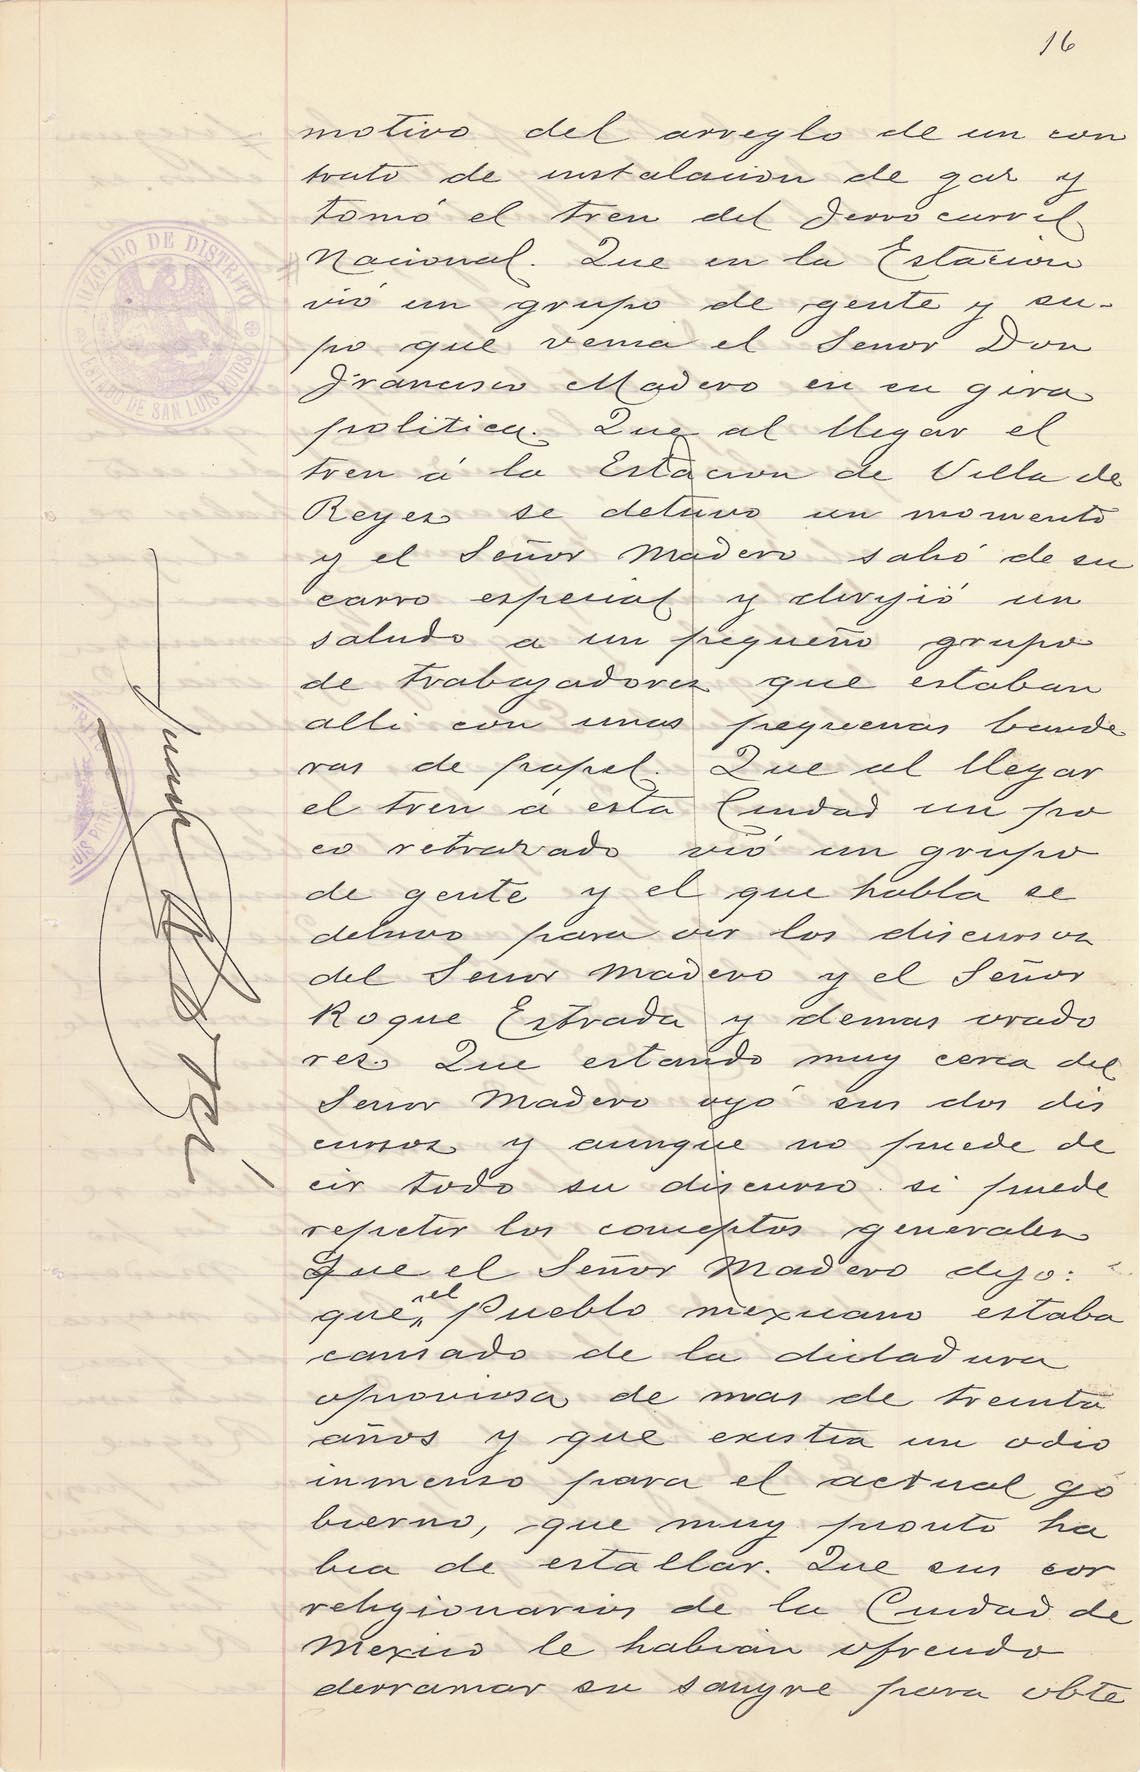 16
motivo del arreglo de un con
trato de instalacion de gas y
tomó el tren del Ferrocarril
Nacional. Que en la Estacion
vió un grupo de gente y su-
po que venia el Señor Don
Francisco Madero en su gira
politica. Que al llegar el
tren á la Estacion de Villa de
Reyes se detuvo un momento
y el Señor Madero salió de su
carro especial y dirijió un
saludo a un pequeño grupo
de trabajadores que estaban
alli con unas pequenas bande
ras de papel. Que al llegar
el tren á esta Ciudad un po
co retrazado vió un grupo
de gente y el que habla se
detuvo para oir los discursos
del Senor Madero y el Señor
Roque Estrada y demas orado
res. Que estando muy cerca del
Senor Madero oyó sus dos dis
cursos y aunque no puede de
cir todo su discurso si puede
repetir los conceptos generales
Que el Señor Madero dijo:
que "el" Pueblo mexicano estaba
cansado de la dictadura
oprobiosa de mas de treinta
años y que existia un odio
inmenso para el actual go
bierno, que muy pronto ha
bia de estallar. Que sus cor
religionarios de la Ciudad de
Mexico le habian ofrecido
derramar su sangre para obte
JUZGADO DE DISTRITO
ESTADO DE SAN LUIS POTOSI
Juan